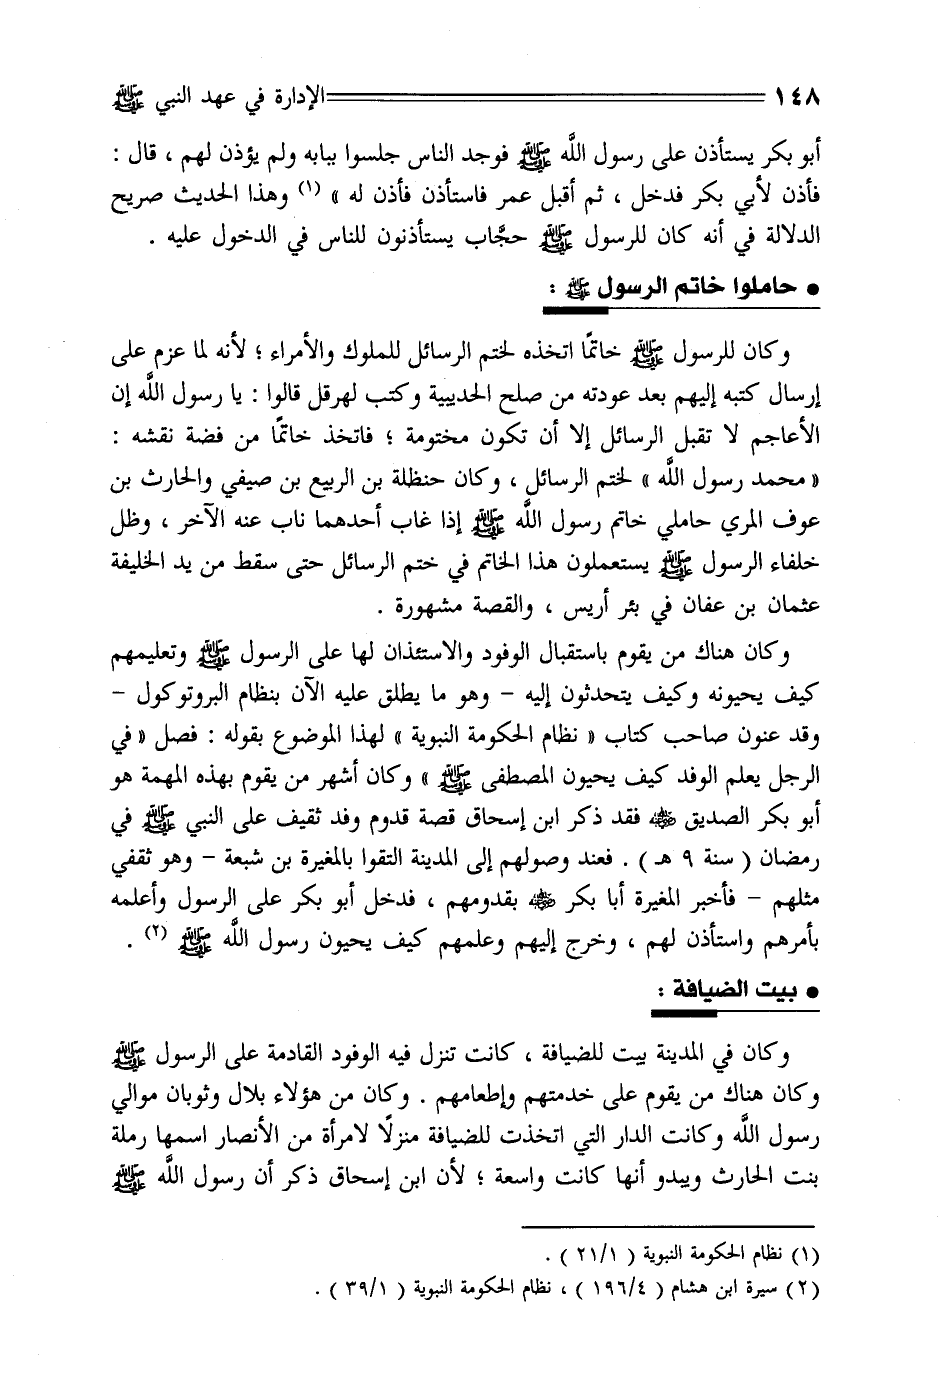 ١٤٨ الإدارة في عهد النبي ﷺ
أبو بكر يستأذن على رسول اللَّه ﷺ فوجد الناس جلسوا ببابه ولم يؤذن لهم ، قال :
فأذن لأبي بكر فدخل ، ثم أقبل عمر فاستأذن فأذن له » (١) وهذا الحديث صريح
الدلالة في أنه كان للرسول ﷺ حجَّاب يستأذنون للناس في الدخول عليه .
● حاملوا خاتم الرسول ﷺ :
وكان للرسول ﷺ خاتمًا اتخذه لختم الرسائل للملوك والأمراء ؛ لأنه لما عزم على
إرسال كتبه إليهم بعد عودته من صلح الحديبية وكتب لهرقل قالوا : يا رسول اللَّه إن
الأعاجم لا تقبل الرسائل إلا أن تكون مختومة ؛ فاتخذ خاتمًا من فضة نقشه :
« محمد رسول اللَّه » لختم الرسائل ، وكان حنظلة بن الربيع بن صيفي والحارث بن
عوف المري حاملي خاتم رسول اللَّه ﷺ إذا غاب أحدهما ناب عنه الآخر ، وظل
خلفاء الرسول ﷺ يستعملون هذا الخاتم في ختم الرسائل حتى سقط من يد الخليفة
عثمان بن عفان في بئر أريس ، والقصة مشهورة .
وكان هناك من يقوم باستقبال الوفود والاستئذان لها على الرسول ﷺ وتعليمهم
كيف يحيونه وكيف يتحدثون إليه – وهو ما يطلق عليه الآن بنظام البروتوكول –
وقد عنون صاحب كتاب « نظام الحكومة النبوية » لهذا الموضوع بقوله : فصل « في
الرجل يعلم الوفد كيف يحيون المصطفى ﷺ » وكان أشهر من يقوم بهذه المهمة هو
أبو بكر الصديق ﷺ فقد ذكر ابن إسحاق قصة قدوم وفد ثقيف على النبي ﷺ في
رمضان ( سنة ٩ هـ ) . فعند وصولهم إلى المدينة التقوا بالمغيرة بن شعبة – وهو ثقفي
مثلهم – فأخبر المغيرة أبا بكر ﷺ بقدومهم ، فدخل أبو بكر على الرسول وأعلمه
بأمرهم واستأذن لهم ، وخرج إليهم وعلمهم كيف يحيون رسول اللَّه ﷺ (٢) .
● بيت الضيافة :
وكان في المدينة بيت للضيافة ، كانت تنزل فيه الوفود القادمة على الرسول ﷺ
وكان هناك من يقوم على خدمتهم وإطعامهم . وكان من هؤلاء بلال وثوبان موالي
رسول اللَّه وكانت الدار التي اتخذت للضيافة منزلًا لامرأة من الأنصار اسمها رملة
بنت الحارث ويبدو أنها كانت واسعة ؛ لأن ابن إسحاق ذكر أن رسول اللَّه ﷺ
(١) نظام الحكومة النبوية ( ٢١/١ ) .
(٢) سيرة ابن هشام ( ١٩٦/٤ ) ، نظام الحكومة النبوية ( ٣٩/١ ) .